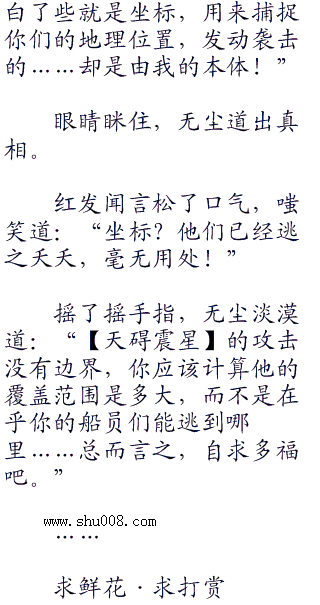 白了些就是坐标，用来捕捉
你们的地理位置，发动袭击
的……却是由我的本体！”
眼睛眯住，无尘道出真
相。
红发闻言松了口气，嗤
笑道：“坐标？他们已经逃
之夭夭，毫无用处！”
摇了摇手指，无尘淡漠
道：“【天碍震星】的攻击
没有边界，你应该计算他的
覆盖范围是多大，而不是在
乎你的船员们能逃到哪
里……总而言之，自求多福
吧。”
www.shu008.com
……
求鲜花·求打赏